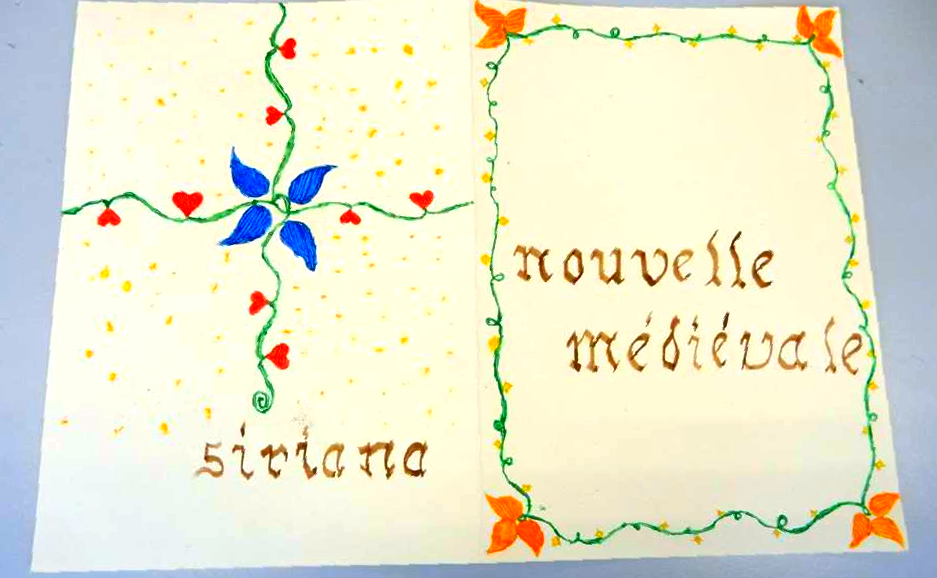 siriana
nouvelle
médiévale